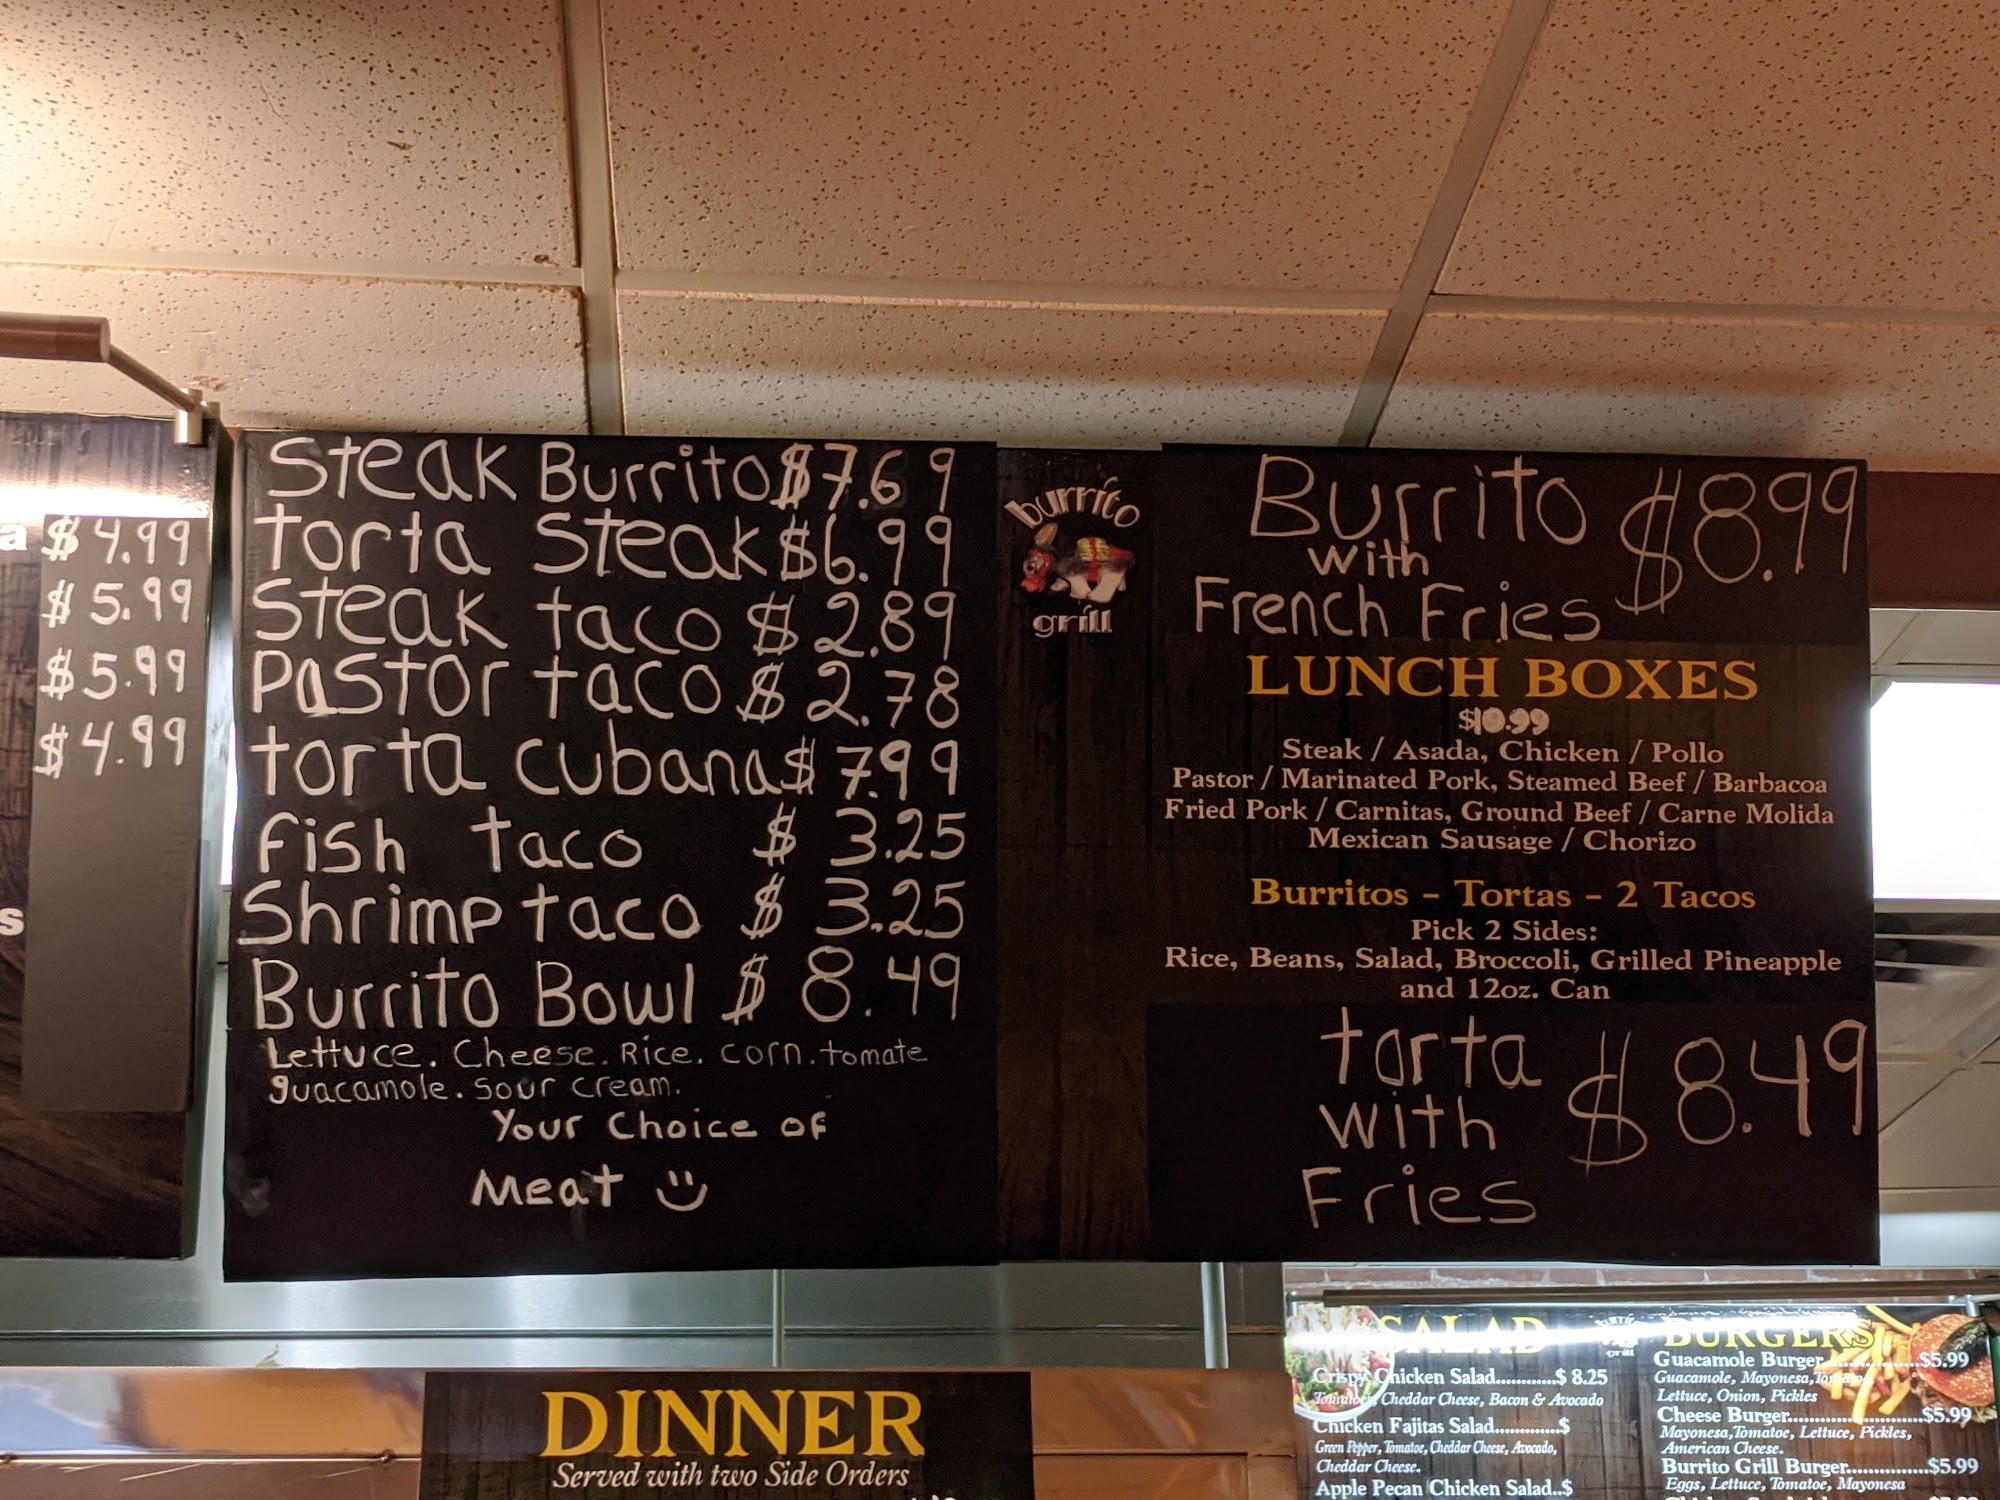 a $4.99
$5.99
$5.99
$4.99
s
Steak Burrito $7.69
torta Steak $6.99
Steak taco $2.89
Pastor taco $2.78
torta cubana $7.99
fish taco $3.25
Shrimp taco $3.25
Burrito Bowl $8.49
Lettuce. Cheese. Rice. corn. tomate
guacamole. sour cream.
Your Choice of
Meat
burrito
grill
Burrito $8.99
with
French Fries
LUNCH BOXES
$10.99
Steak / Asada, Chicken / Pollo
Pastor / Marinated Pork, Steamed Beef / Barbacoa
Fried Pork / Carnitas, Ground Beef / Carne Molida
Mexican Sausage / Chorizo
Burritos - Tortas - 2 Tacos
Pick 2 Sides:
Rice, Beans, Salad, Broccoli, Grilled Pineapple
and 12oz. Can
torta $8.49
with
Fries
DINNER
Served with two Side Orders
SALAD
Crispy Chicken Salad............$ 8.25
Tomatoe, Cheddar Cheese, Bacon & Avocado
Chicken Fajitas Salad..............$
Green Pepper, Tomatoe, Cheddar Cheese, Avocado,
Cheddar Cheese.
Apple Pecan Chicken Salad..$
grill
BURGERS
Guacamole Burger....................$5.99
Guacamole, Mayonesa, Tomatoe,
Lettuce, Onion, Pickles
Cheese Burger............................$5.99
Mayonesa, Tomatoe, Lettuce, Pickles,
American Cheese.
Burrito Grill Burger.................$5.99
Eggs, Lettuce, Tomatoe, Mayonesa